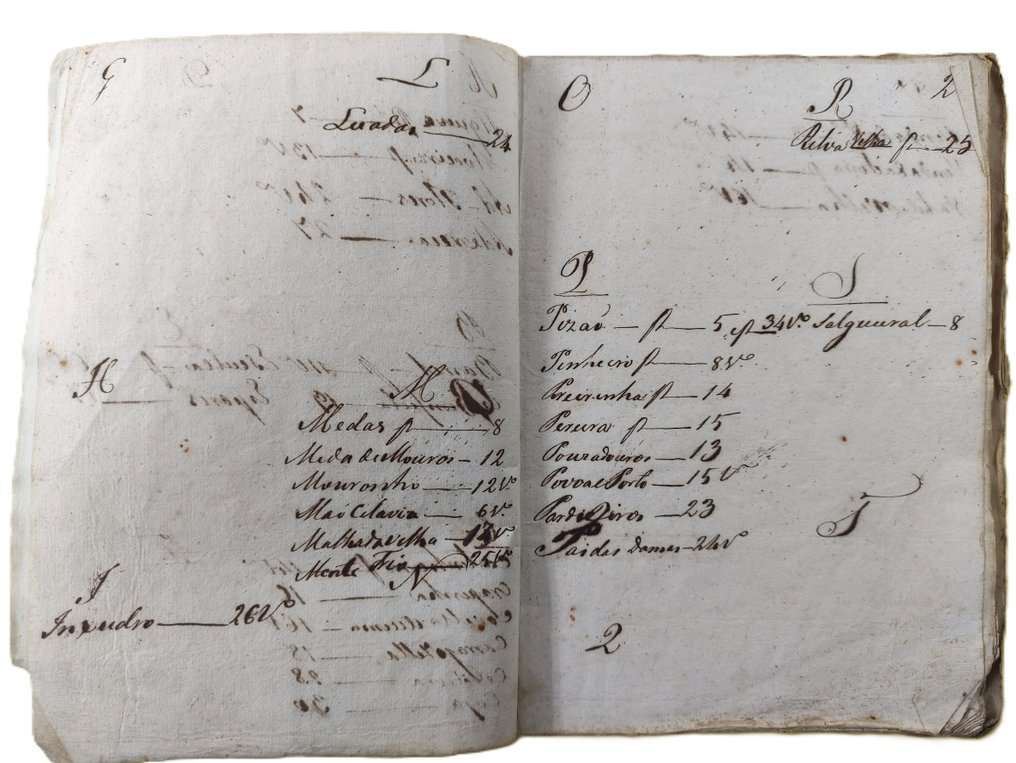 G
L
Luadas 24
H
M
Medas p 8
Meda de Mouros 12
Mouronho 12 vº
Mao Celavia 6 vº
Malhada Velha 13 vº
Monte Frio 25 vº
N
I
26 vº
O
R
2
Relva Velha p 25
P
Pizaõ p 5 e p 34 vº
Pinheiro p 8 vº
Pereirinha p 14
Pereira p 15
Pouzadouros 13
Povoa e Porto 15 vº
Pardieiros 23
Pai das Donas 24 vº
S
Salgueiral 8
T
2